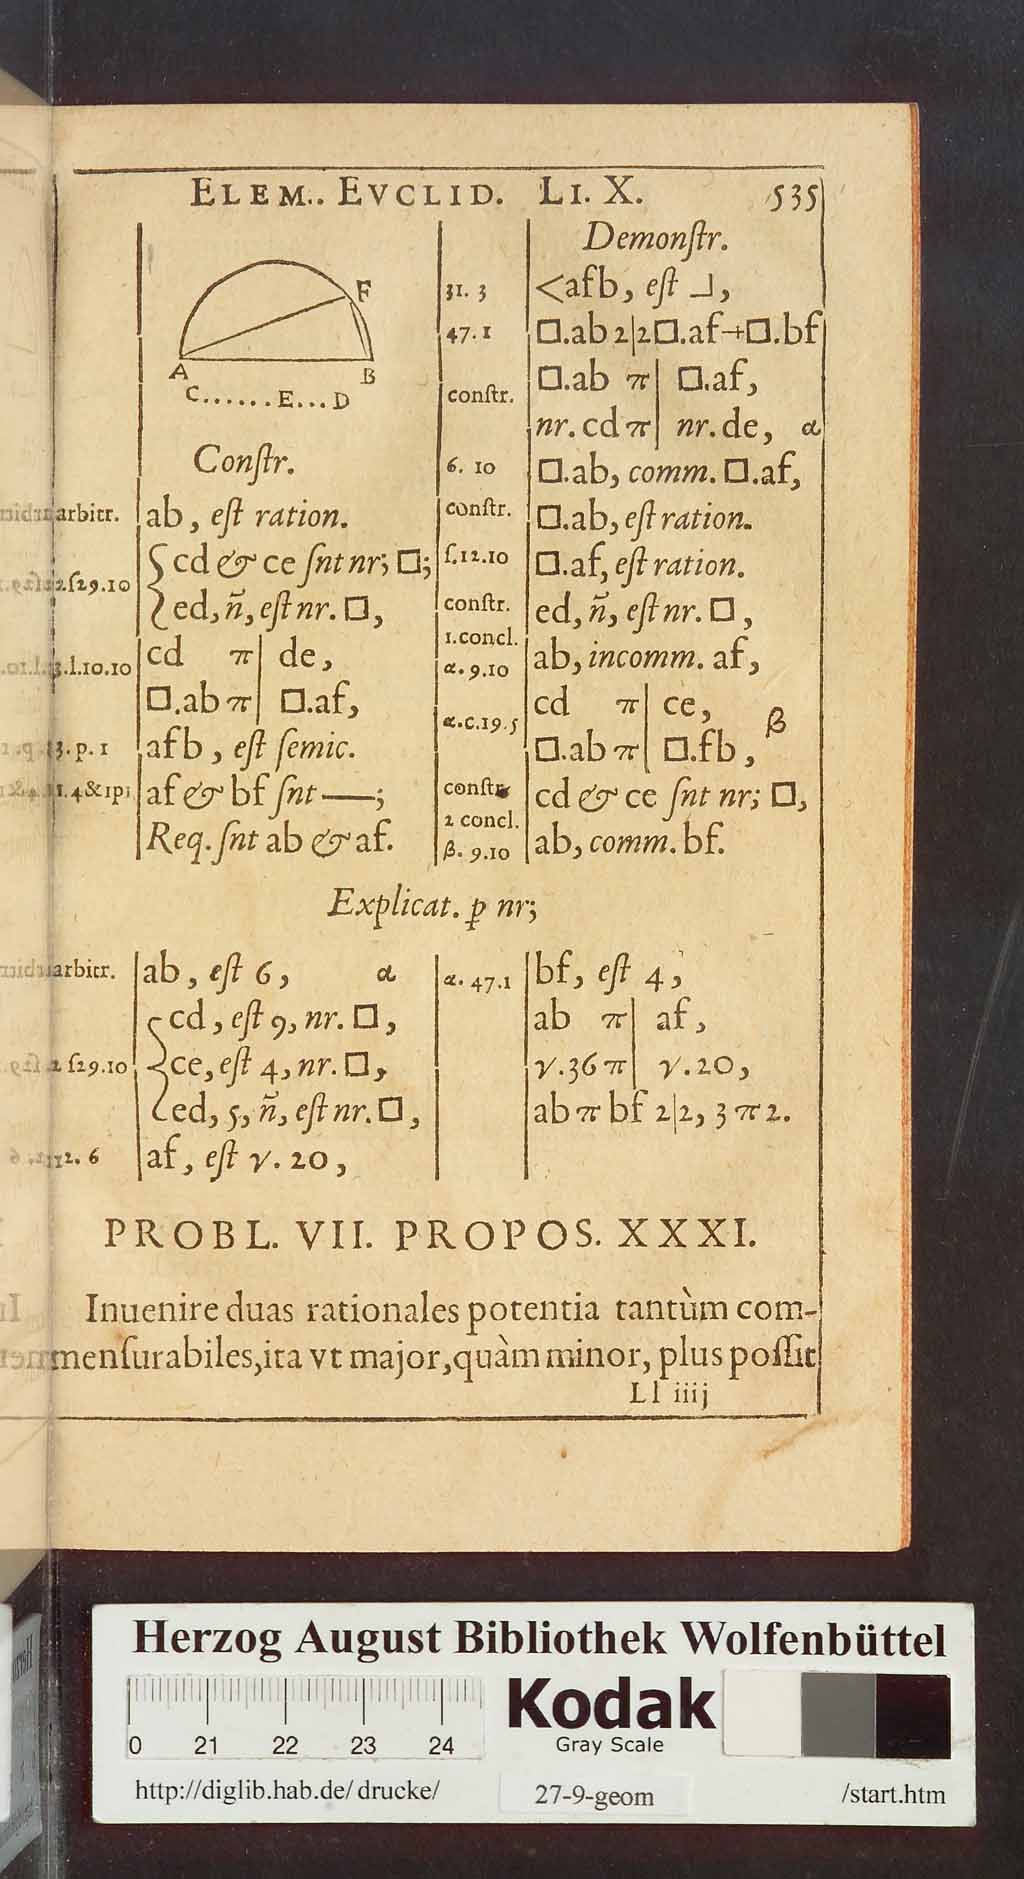 ELEM.. EVCLID. LI. X. 535
F
A B
C......E...D
Constr.
arbitr. ab, est ration.
2.ſ29.10 cd & ce ſnt nr; □;
ed, ñ, est nr. □,
3.l.10.10 cd π| de,
□.ab π| □.af,
3. p. 1 afb, est ſemic.
1.4&1p1 af & bf ſnt —;
Req. ſnt ab & af.
Demonſtr.
31. 3 <afb, eſt ⅃,
47.1 □.ab 2|2 □.af + □.bf
constr. □.ab π| □.af,
nr. cd π| nr. de, α
6. 10 □.ab, comm. □.af,
conſtr. □.ab, eſt ration.
ſ.12.10 □.af, eſt ration.
conſtr. ed, ñ, eſt nr. □,
1.concl.
α. 9.10 ab, incomm. af,
cd π| ce, β
α.c.19.5 □.ab π| □.fb,
conſtr. cd & ce ſnt nr; □,
2 concl.
β. 9.10 ab, comm. bf.
Explicat. p nr;
arbitr. ab, eſt 6, α
cd, eſt 9, nr. □,
2 ſ29.10 ce, eſt 4, nr. □,
ed, 5, ñ, eſt nr. □,
12. 6 af, eſt γ. 20,
α. 47.1 bf, eſt 4,
ab π| af,
γ.36 π| γ.20,
ab π bf 2|2, 3 π 2.
PROBL. VII. PROPOS. XXXI.
Inuenire duas rationales potentia tantùm com-
menſurabiles, ita vt major, quàm minor, plus poſſit
Ll iiij
Herzog August Bibliothek Wolfenbüttel
0 21 22 23 24
Kodak
Gray Scale
http://diglib.hab.de/ drucke/ 27-9-geom /start.htm